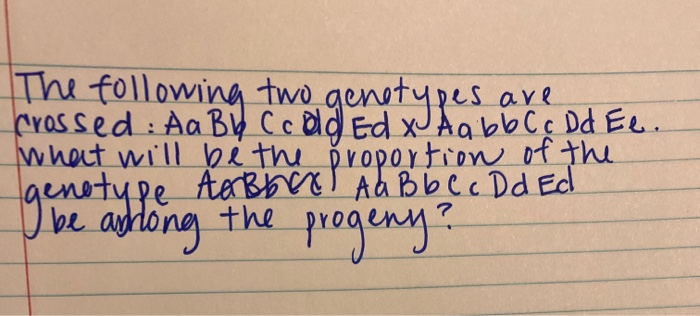 The following two genotypes are
crossed : Aa Bb Cc dd Ed x Aa bb Cc Dd Ee.
what will be the proportion of the
genotype Aa Bb Cc Dd Ed
be among the progeny?